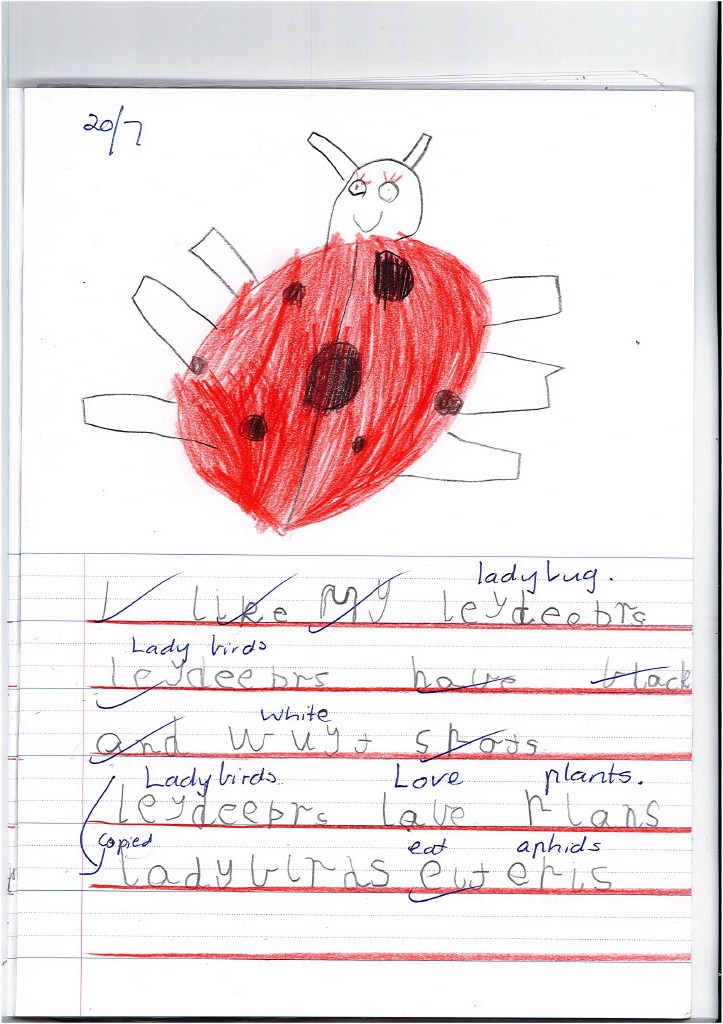 20/7
ladybug.
I like My leydeebrs
Lady birds
leydeebrs have black
white
and wuyt spots
Ladybirds Love plants.
leydeebrs lave plans
copied eat aphids
ladybirds eit efis